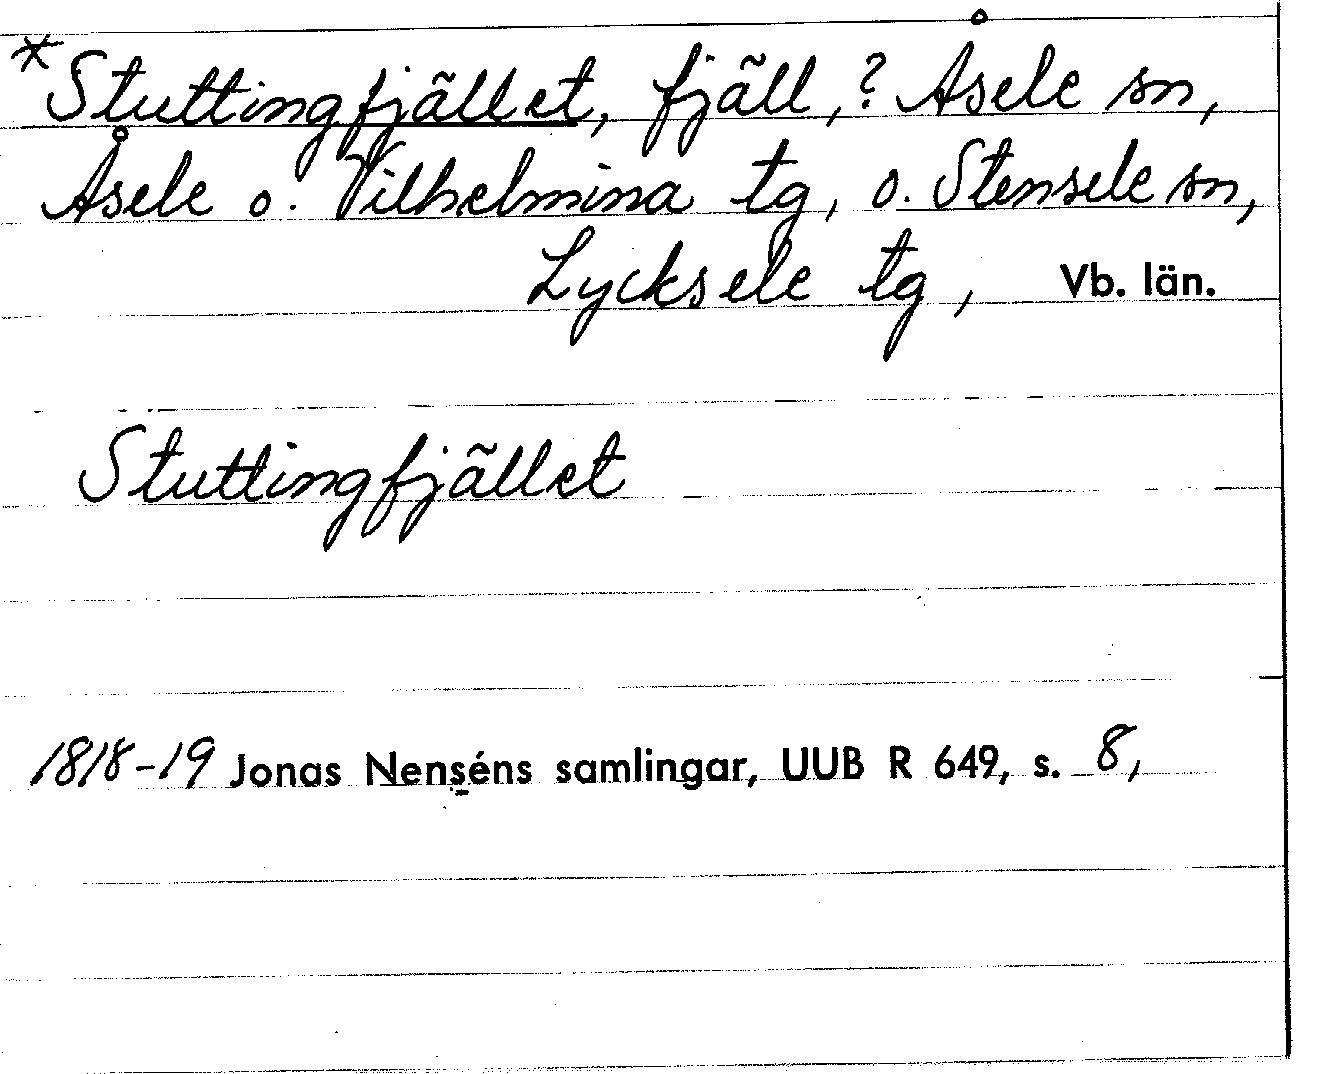 *Stuttingfjället, fjäll, ? Åsele sn,
Åsele o. Vilhelmina tg, o. Stensele sn,
Lycksele tg, Vb. län.
Stuttingfjället
1818-19 Jonas Nenséns samlingar, UUB R 649, s. 8,